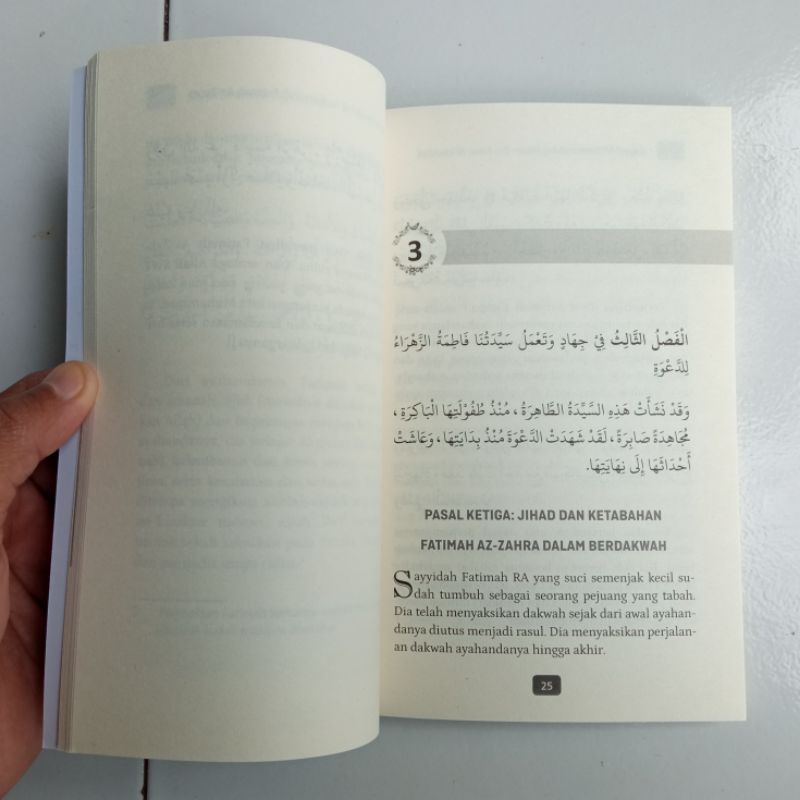 3
الْفَصْلُ الثَّالِثُ فِيْ جِهَادٍ وَتَعْمَلُ سَيِّدَتُنَا فَاطِمَةُ الزَّهْرَاءُ
لِلدَّعْوَةِ
وَقَدْ نَشَأَتْ هَذِهِ السَّيِّدَةُ الطَّاهِرَةُ، مُنْذُ طُفُوْلَتِهَا الْبَاكِرَةِ،
مُجَاهِدَةً صَابِرَةً، لَقَدْ شَهَدَتْ الدَّعْوَةَ مُنْذُ بِدَايَتِهَا، وَعَاشَتْ
أَحْدَاثَهَا إِلَى نِهَايَتِهَا.
PASAL KETIGA: JIHAD DAN KETABAHAN
FATIMAH AZ-ZAHRA DALAM BERDAKWAH
Sayyidah Fatimah RA yang suci semenjak kecil su-
dah tumbuh sebagai seorang pejuang yang tabah.
Dia telah menyaksikan dakwah sejak dari awal ayahan-
danya diutus menjadi rasul. Dia menyaksikan perjalan-
an dakwah ayahandanya hingga akhir.
25